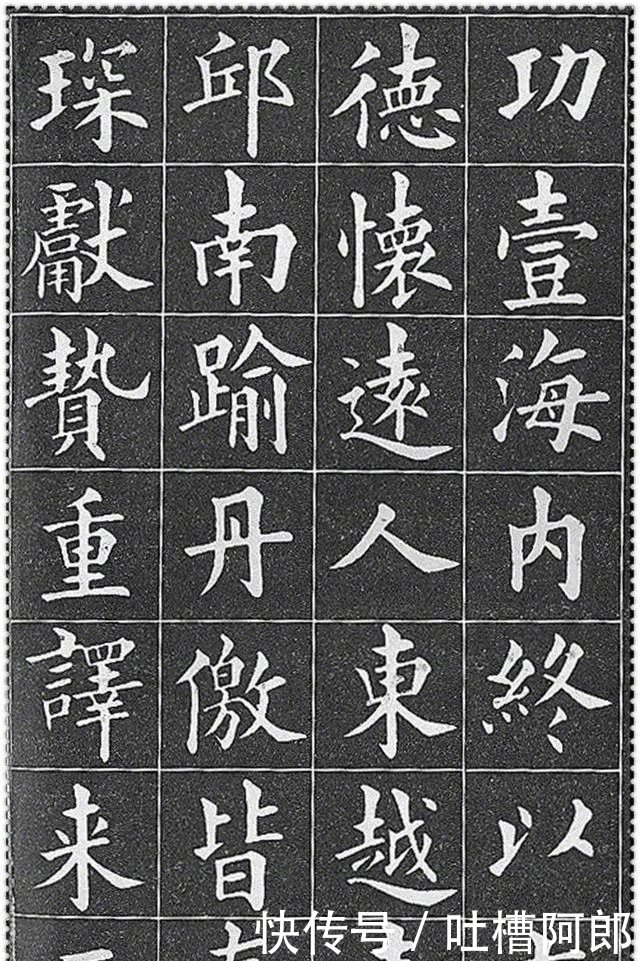 功壹海内終以
徳懷遠人東越
邱南踰丹儌皆
琛獻贄重譯来
快传号 / 吐槽阿郎